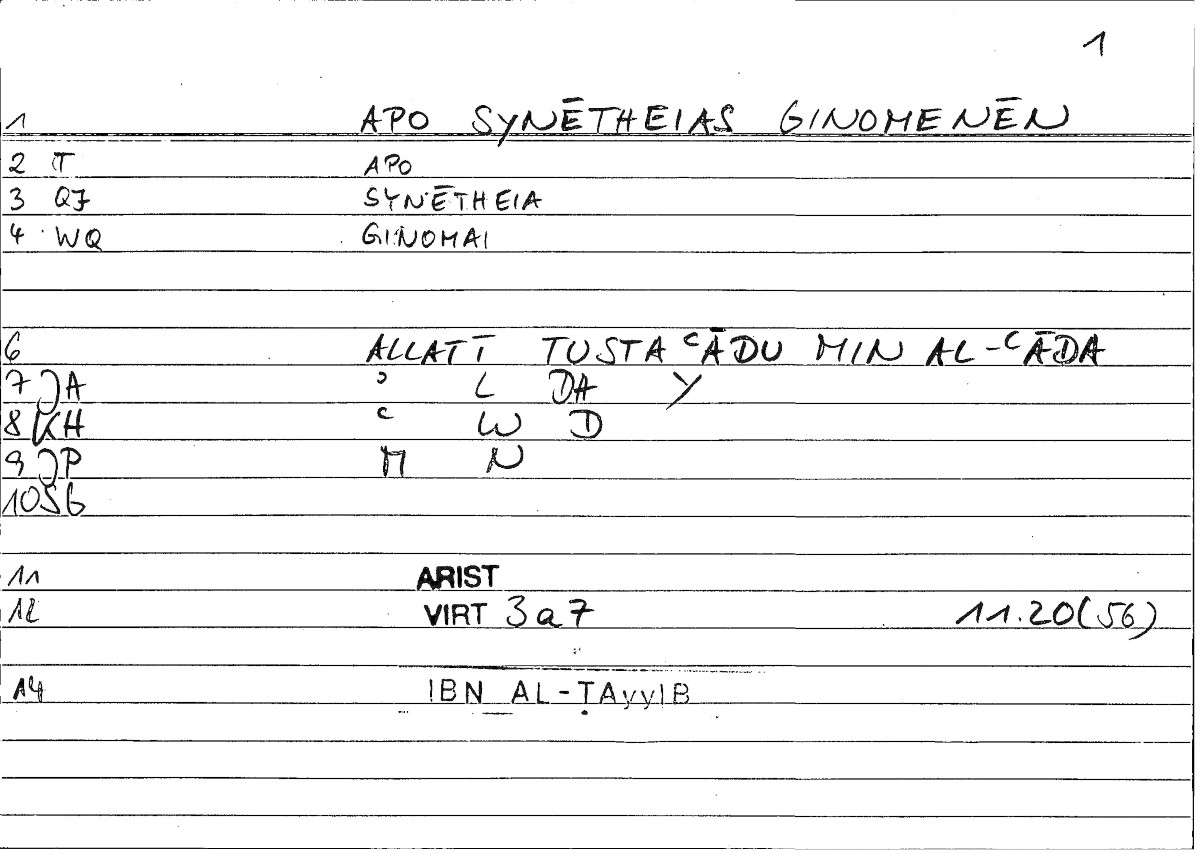 1
1 APO SYNĒTHEIAS GINOMENĒN
2 T APO
3 QJ SYNĒTHEIA
4 WQ GINOMAI
6 ALLATĪ TUSTAʿĀDU MIN AL-ʿĀDA
7 JA ʾ L DA Y
8 KH ʿ W D
9 JP M N
10 SG
11 ARIST
12 VIRT 3a7 11.20(56)
14 IBN AL-ṬAyyIB